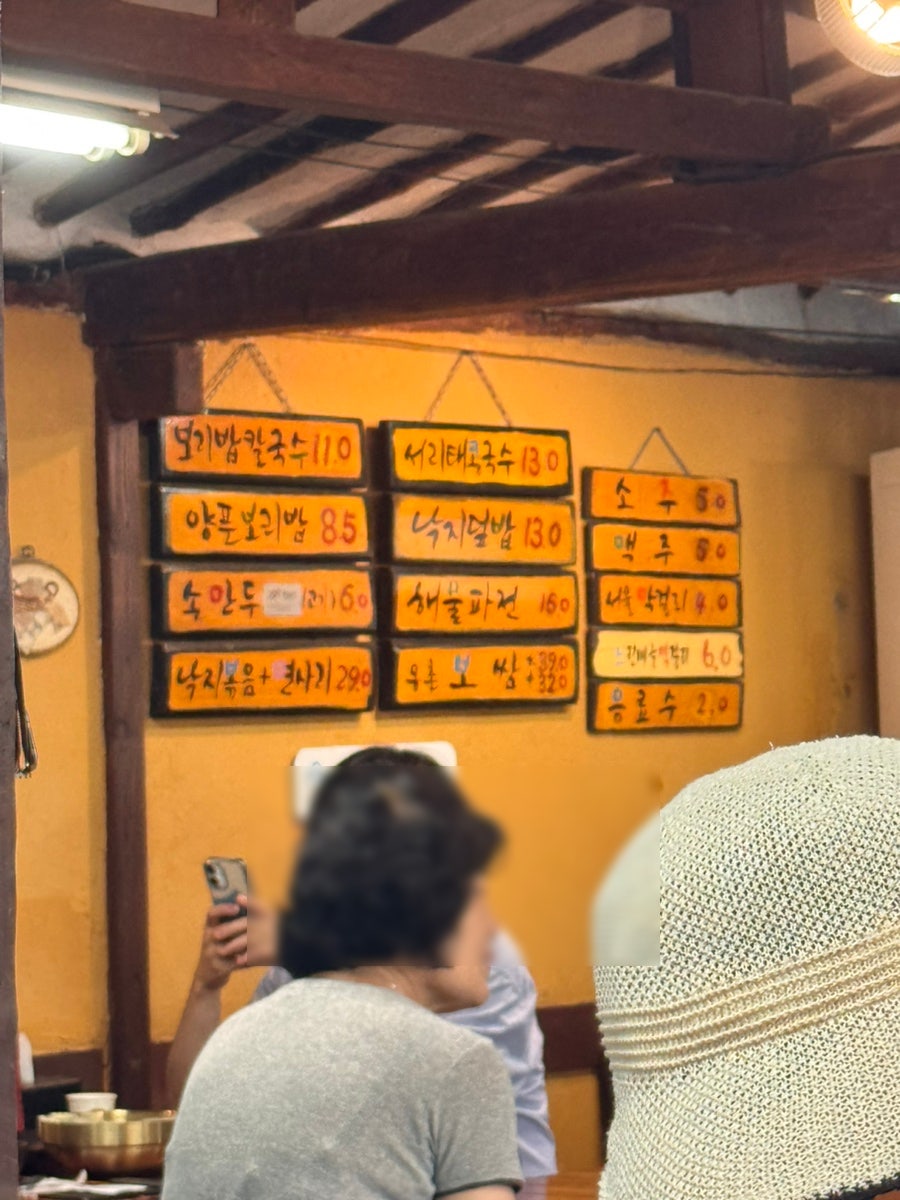 보리밥칼국수 11.0
양푼보리밥 8.5
손만두 6.0
낙지볶음+면사리 29.0
서리태콩국수 13.0
낙지덮밥 13.0
해물파전 16.0
보쌈
소주 5.0
맥주 5.0
서울막걸리 4.0
6.0
음료수 2.0